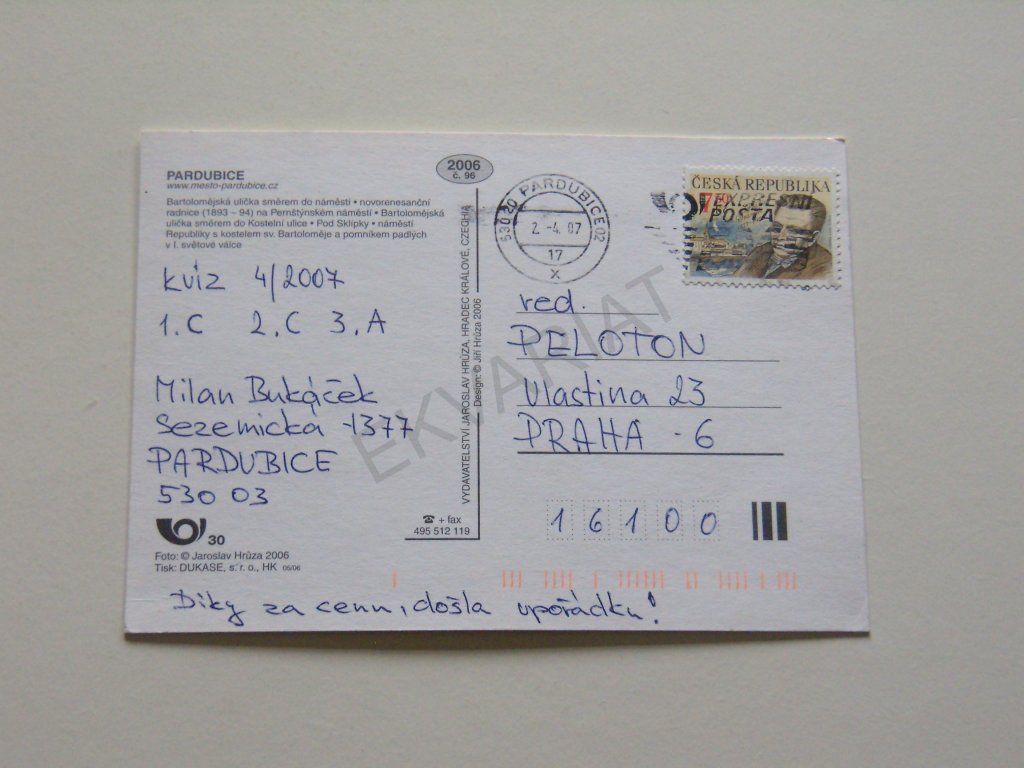 PARDUBICE
www.mesto-pardubice.cz
Bartolomějská ulička směrem do náměstí • novorenesanční
radnice (1893 – 94) na Pernštýnském náměstí • Bartolomějská
ulička směrem do Kostelní ulice • Pod Sklípky • náměstí
Republiky s kostelem sv. Bartoloměje a pomníkem padlých
v I. světové válce
kvíz 4/2007
1.C 2.C 3.A
Milan Bukáček
Sezemická 1377
PARDUBICE
530 03
30
Foto: © Jaroslav Hrůza 2006
Tisk: DUKASE, s. r. o., HK 05/06
Díky za cenu, došla upořádku!
2006
č. 96
VYDAVATELSTVÍ JAROSLAV HRŮZA, HRADEC KRÁLOVÉ, CZECHIA
Design: © Jiří Hrůza 2006
☎ + fax
495 512 119
530 20 PARDUBICE 02
2.-4.07
17
x
ČESKÁ REPUBLIKA
POSTA
red.
PELOTON
Vlastina 23
PRAHA - 6
16100
EKVARIAT